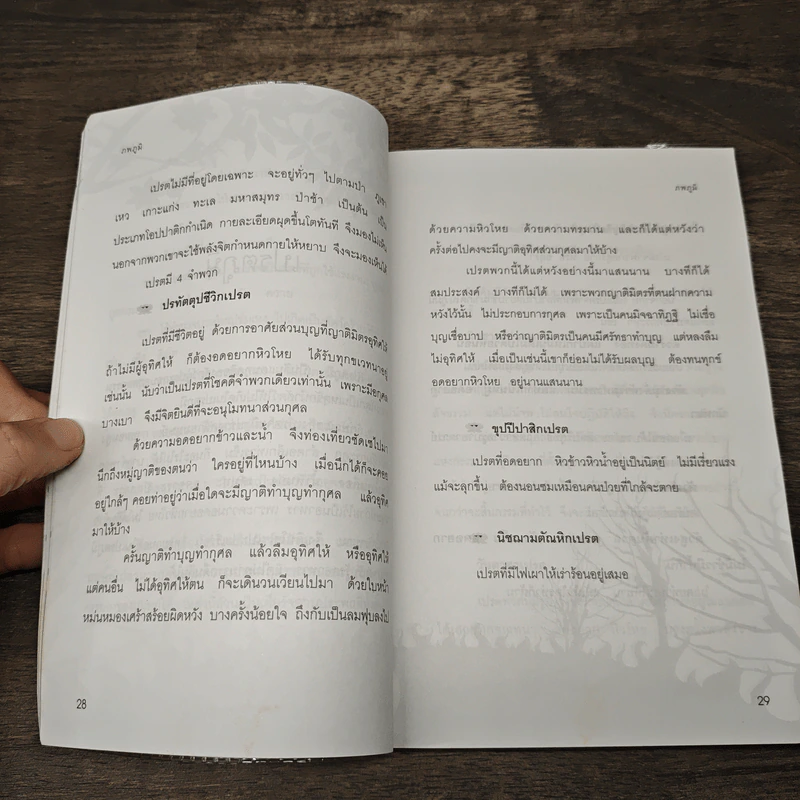 ภพภูมิ
เปรตไม่มีที่อยู่โดยเฉพาะ จะอยู่ทั่วๆ ไปตามป่า ภูเขา
เหว เกาะแก่ง ทะเล มหาสมุทร ป่าช้า เป็นต้น เป็น
ประเภทโอปปาติกกำเนิด กายละเอียดผุดขึ้นโตทันที จึงมองไม่เห็น
นอกจากพวกเขาจะใช้พลังจิตกำหนดกายให้หยาบ จึงจะมองเห็นได้
เปรตมี 4 จำพวก
ปรทัตตุปชีวิกเปรต
เปรตที่มีชีวิตอยู่ ด้วยการอาศัยส่วนบุญที่ญาติมิตรอุทิศให้
ถ้าไม่มีผู้อุทิศให้ ก็ต้องอดอยากหิวโหย ได้รับทุกขเวทนาอยู่
เช่นนั้น นับว่าเป็นเปรตที่โชคดีจำพวกเดียวเท่านั้น เพราะมีอกุศล
บางเบา จึงมีจิตยินดีที่จะอนุโมทนาส่วนกุศล
ด้วยความอดอยากข้าวและน้ำ จึงท่องเที่ยวซัดเซไปมา
นึกถึงหมู่ญาติของตนว่า ใครอยู่ที่ไหนบ้าง เมื่อนึกได้ก็จะคอย
อยู่ใกล้ๆ คอยท่าอยู่ว่าเมื่อใดจะมีญาติทำบุญทำกุศล แล้วอุทิศ
มาให้บ้าง
ครั้นญาติทำบุญทำกุศล แล้วลืมอุทิศให้ หรืออุทิศให้
แต่คนอื่น ไม่ได้อุทิศให้ตน ก็จะเดินวนเวียนไปมา ด้วยใบหน้า
หม่นหมองเศร้าสร้อยผิดหวัง บางครั้งน้อยใจ ถึงกับเป็นลมฟุบลงไป
28
ภพภูมิ
ด้วยความหิวโหย ด้วยความทรมาน และก็ได้แต่หวังว่า
ครั้งต่อไปคงจะมีญาติอุทิศส่วนกุศลมาให้บ้าง
เปรตพวกนี้ได้แต่หวังอย่างนี้มาแสนนาน บางทีก็ได้
สมประสงค์ บางทีก็ไม่ได้ เพราะพวกญาติมิตรที่ตนฝากความ
หวังไว้นั้น ไม่ประกอบการกุศล เพราะเป็นคนมิจฉาทิฏฐิ ไม่เชื่อ
บุญเชื่อบาป หรือว่าญาติมิตรเป็นคนมีศรัทธาทำบุญ แต่หลงลืม
ไม่อุทิศให้ เมื่อเป็นเช่นนี้เขาก็ย่อมไม่ได้รับผลบุญ ต้องทนทุกข์
อดอยากหิวโหย อยู่นานแสนนาน
ขุปปีปาสิกเปรต
เปรตที่อดอยาก หิวข้าวหิวน้ำอยู่เป็นนิตย์ ไม่มีเรี่ยวแรง
แม้จะลุกขึ้น ต้องนอนซมเหมือนคนป่วยที่ใกล้จะตาย
นิชฌามตัณหิกเปรต
เปรตที่มีไฟเผาให้เร่าร้อนอยู่เสมอ
29